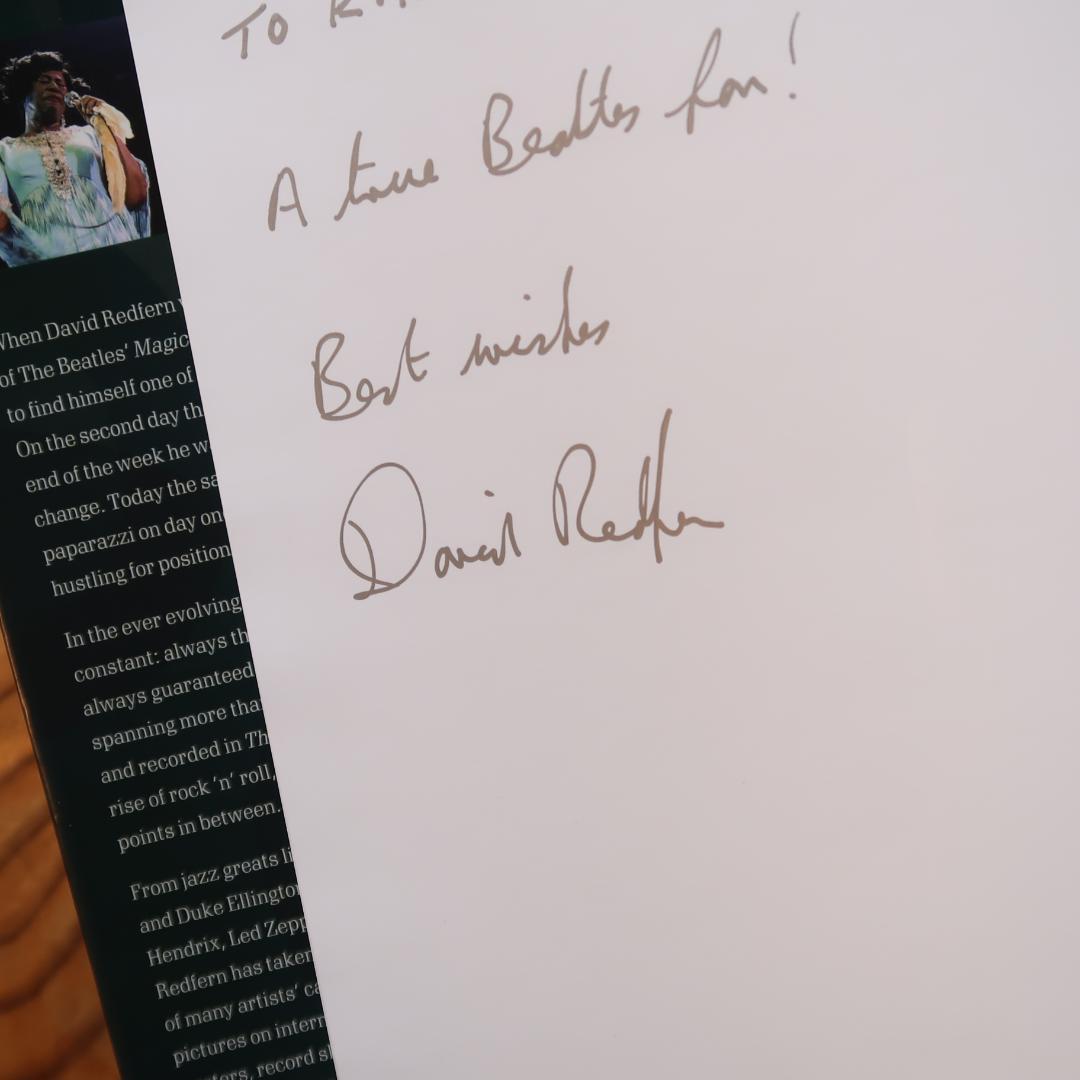 TO
A true Beatles fan!
Best wishes
David Redfern
When David Redfern
of The Beatles' Magic
to find himself one of
On the second day th
end of the week he w
change. Today the sa
paparazzi on day on
hustling for position
In the ever evolving
constant: always th
always guaranteed
spanning more tha
and recorded in Th
rise of rock 'n' roll,
points in between.
From jazz greats li
and Duke Ellington
Hendrix, Led Zepp
Redfern has taken
of many artists' ca
pictures on intern
record sl